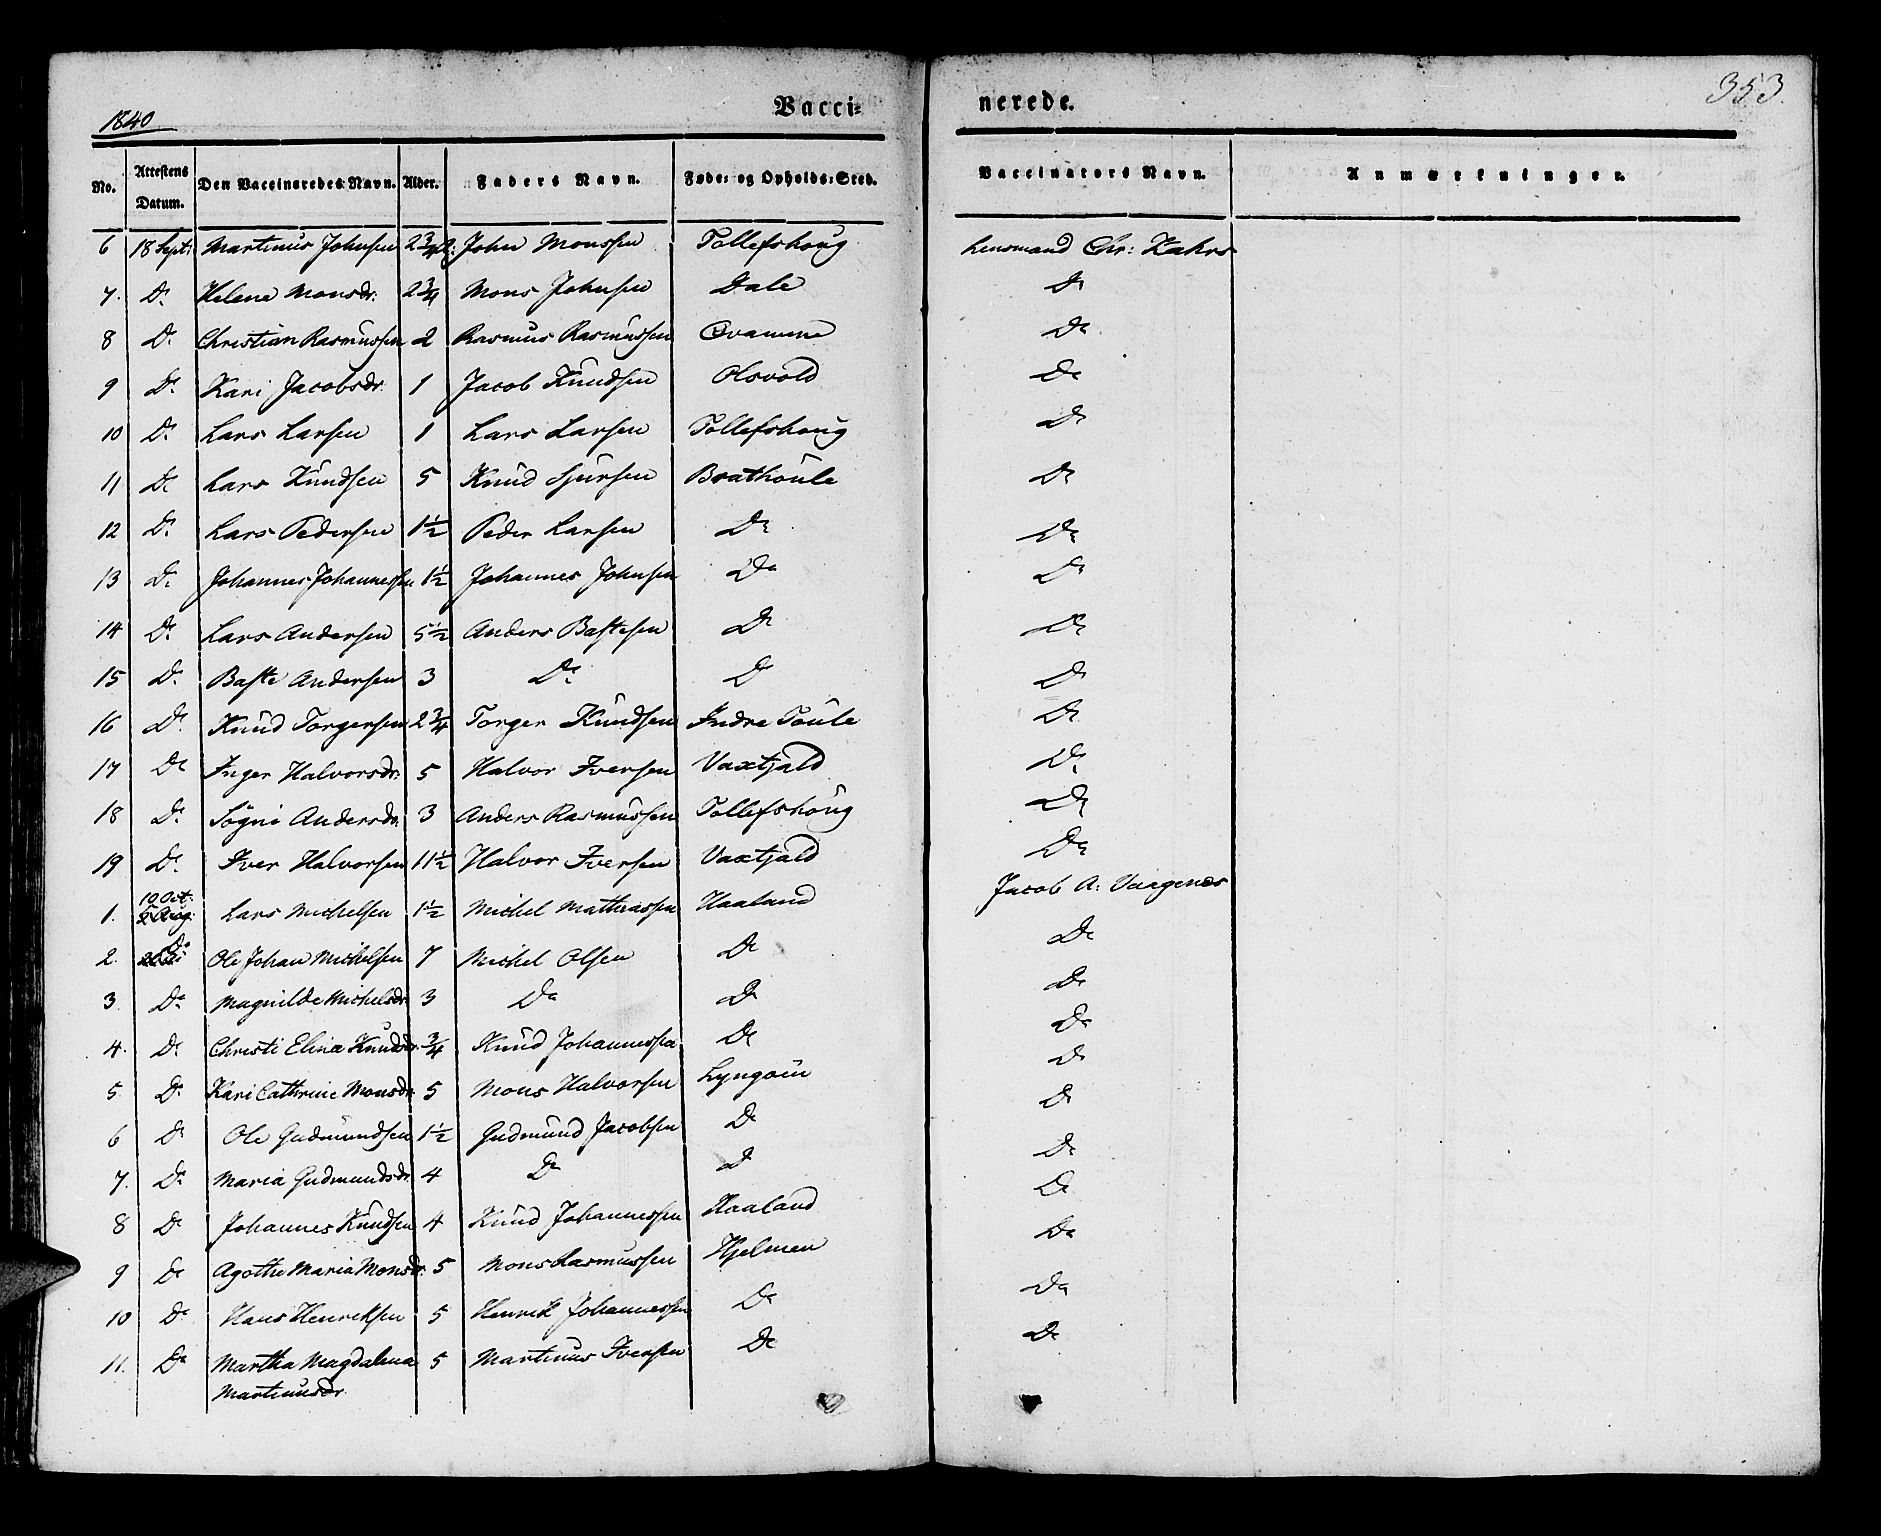 1840 Vacci= nerede. 353.
No. Attestens Datum. Den Vaccineredes Navn. Alder. Faders Navn. Føde= og Opholds=Sted. Vaccinators Navn. Anmærkninger.
6 18 Sept: Martinus Johnsen 2 3/4 John Monssen Tollefshoug Lensmand Chr: Zahrs
7. Do Helene Monsdr. 2 3/4 Mons Johnsen Dale Do
8 Do Christian Rasmussen 2 Rasmus Rasmussen Qvamme Do
9 Do Kari Jacobsdr. 1 Jacob Knudsen Olsvold Do
10 Do Lars Larsen 1 Lars Larsen Tollefshoug Do
11 Do Lars Knudsen 5 Knud Sjursen Brathoule Do
12 Do Lars Pedersen 1 1/2 Peder Larsen Do Do
13 Do Johannes Johannessen 1 1/2 Johannes Johnsen Do Do
14 Do Lars Andersen 5 1/2 Anders Bastesen Do Do
15 Do Baste Andersen 3 Do Do Do
16 Do Knud Torgersen 2 3/4 Torger Knudsen Indre Toule Do
17 Do Inger Halvorsdr. 5 Halvor Iversen Vaxtjald Do
18 Do Sögni Andersdr. 3 Anders Rasmussen Tollefshoug Do
19 Do Iver Halvorsen 11 1/2 Halvor Iversen Vaxtjald Do
1. 19 Oct: Lars Michelsen 1 1/2 Michel Mathiassen Haaland Jacob A: Vaagenes
2. Do Ole Johan Michelsen 7 Michel Olsen Do Do
3 Do Magnilde Michelsdr 3 Do Do Do
4. Do Christi Elina Knudsdr. 3/4 Knud Johannessen Do Do
5 Do Kari Cathrine Monsdr. 5 Mons Halvorsen Lyngöen Do
6 Do Ole Gudmundsen 1 1/2 Gudmund Jacobsen Do Do
7. Do Maria Gudmundsdr. 4 Do Do Do
8 Do Johannes Knudsen 4 Knud Johannessen Haaland Do
9 Do Agothe Maria Monsdr. 5 Mons Rasmussen Hjelmen Do
10 Do Hans Henriksen 5 Henrik Johannessen Do Do
11. Do Martha Magdalena 5 Martinus Iversen Do Do
Martinusdr.